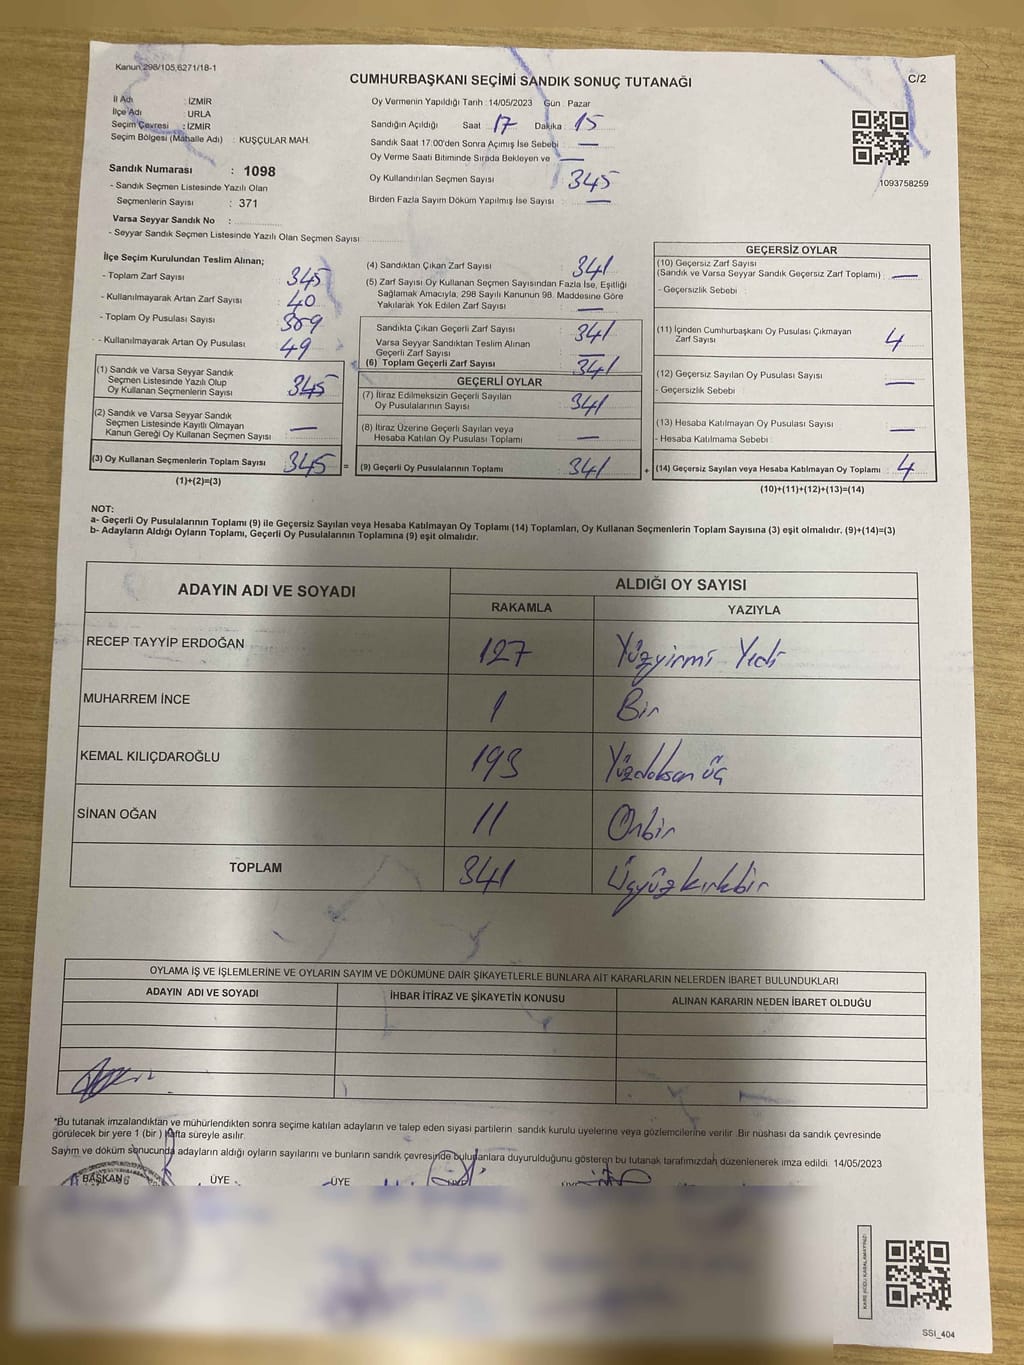 Kanun 298/105,6271/18-1
CUMHURBAŞKANI SEÇİMİ SANDIK SONUÇ TUTANAĞI
C/2
İl Adı : İZMİR
İlçe Adı : URLA
Seçim Çevresi : İZMİR
Seçim Bölgesi (Mahalle Adı) : KUŞÇULAR MAH.
Oy Vermenin Yapıldığı Tarih : 14/05/2023 Gün : Pazar
Sandığın Açıldığı Saat 17 Dakika 15
Sandık Saat 17:00'den Sonra Açımış İse Sebebi : —
Oy Verme Saati Bitiminde Sırada Bekleyen ve —
Oy Kullandırılan Seçmen Sayısı : 345
Birden Fazla Sayım Döküm Yapılmış İse Sayısı : —
1093758259
Sandık Numarası : 1098
- Sandık Seçmen Listesinde Yazılı Olan
Seçmenlerin Sayısı : 371
Varsa Seyyar Sandık No :
- Seyyar Sandık Seçmen Listesinde Yazılı Olan Seçmen Sayısı
İlçe Seçim Kurulundan Teslim Alınan;
- Toplam Zarf Sayısı 345
- Kullanılmayarak Artan Zarf Sayısı 40
- Toplam Oy Pusulası Sayısı
- Kullanılmayarak Artan Oy Pusulası 49
(1) Sandık ve Varsa Seyyar Sandık
Seçmen Listesinde Yazılı Olup
Oy Kullanan Seçmenlerin Sayısı 345
(2) Sandık ve Varsa Seyyar Sandık
Seçmen Listesinde Kayıtlı Olmayan
Kanun Gereği Oy Kullanan Seçmen Sayısı —
(3) Oy Kullanan Seçmenlerin Toplam Sayısı 345 =
(1)+(2)=(3)
(4) Sandıktan Çıkan Zarf Sayısı 341
(5) Zarf Sayısı Oy Kullanan Seçmen Sayısından Fazla İse, Eşitliği
Sağlamak Amacıyla; 298 Sayılı Kanunun 98. Maddesine Göre
Yakılarak Yok Edilen Zarf Sayısı —
Sandıkta Çıkan Geçerli Zarf Sayısı 341
Varsa Seyyar Sandıktan Teslim Alınan
Geçerli Zarf Sayısı —
(6) Toplam Geçerli Zarf Sayısı 341
GEÇERLİ OYLAR
(7) İtiraz Edilmeksizin Geçerli Sayılan
Oy Pusulalarının Sayısı 341
(8) İtiraz Üzerine Geçerli Sayılan veya
Hesaba Katılan Oy Pusulası Toplamı —
(9) Geçerli Oy Pusulalarının Toplamı 341 +
GEÇERSİZ OYLAR
(10) Geçersiz Zarf Sayısı
(Sandık ve Varsa Seyyar Sandık Geçersiz Zarf Toplamı) : —
- Geçersizlik Sebebi :
(11) İçinden Cumhurbaşkanı Oy Pusulası Çıkmayan
Zarf Sayısı 4
(12) Geçersiz Sayılan Oy Pusulası Sayısı —
- Geçersizlik Sebebi
(13) Hesaba Katılmayan Oy Pusulası Sayısı —
- Hesaba Katılmama Sebebi :
(14) Geçersiz Sayılan veya Hesaba Katılmayan Oy Toplamı : 4
(10)+(11)+(12)+(13)=(14)
NOT:
a- Geçerli Oy Pusulalarının Toplamı (9) ile Geçersiz Sayılan veya Hesaba Katılmayan Oy Toplamı (14) Toplamları, Oy Kullanan Seçmenlerin Toplam Sayısına (3) eşit olmalıdır. (9)+(14)=(3)
b- Adayların Aldığı Oyların Toplamı, Geçerli Oy Pusulalarının Toplamına (9) eşit olmalıdır.
ADAYIN ADI VE SOYADI
ALDIĞI OY SAYISI
RAKAMLA YAZIYLA
RECEP TAYYİP ERDOĞAN 127 Yüzyirmi Yedi
MUHARREM İNCE 1 Bir
KEMAL KILIÇDAROĞLU 193 Yüzdoksan üç
SİNAN OĞAN 11 Onbir
TOPLAM 341 Üçyüz kırkbir
OYLAMA İŞ VE İŞLEMLERİNE VE OYLARIN SAYIM VE DÖKÜMÜNE DAİR ŞİKAYETLERLE BUNLARA AİT KARARLARIN NELERDEN İBARET BULUNDUKLARI
ADAYIN ADI VE SOYADI İHBAR İTİRAZ VE ŞİKAYETİN KONUSU ALINAN KARARIN NEDEN İBARET OLDUĞU
*Bu tutanak imzalandıktan ve mühürlendikten sonra seçime katılan adayların ve talep eden siyasi partilerin sandık kurulu üyelerine veya gözlemcilerine verilir .Bir nüshası da sandık çevresinde
görülecek bir yere 1 (bir ) hafta süreyle asılır.
Sayım ve döküm sonucunda adayların aldığı oyların sayılarını ve bunların sandık çevresinde bulunanlara duyurulduğunu gösteren bu tutanak tarafımızdan düzenlenerek imza edildi. 14/05/2023
BAŞKAN ÜYE ÜYE
KARE KODU KARALAMAYINIZ!
SSI_404